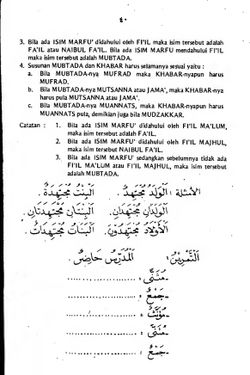 3. Bila ada ISIM MARFU' didahului oleh FI'IL maka isim tersebut adalah
FA'IL atau NAIBUL FA'IL. Bila ada ISIM MARFU' mendahului FI'IL
maka isim tersebut adalah MUBTADA.
4. Susunan MUBTADA dan KHABAR harus selamanya sesuai yaitu :
a. Bila MUBTADA-nya MUFRAD maka KHABAR-nyapun harus
MUFRAD.
b. Bila MUBTADA-nya MUTSANNA atau JAMA', maka KHABAR-nya
harus pula MUTSANNA atau JAMA'.
c. Bila MUBTADA-nya MUANNATS, maka KHABAR-nyapun harus
MUANNATS pula, demikian juga bila MUDZAKKAR.
Catatan : 1. Bila ada ISIM MARFU' didahului oleh FI'IL MA'LUM,
maka isim tersebut adalah FA'IL.
2. Bila ada ISIM MARFU' didahului oleh FI'IL MAJHUL,
maka isim tersebut adalah NAIBUL FA'IL.
3. Bila ada ISIM MARFU' sedangkan sebelumnya tidak ada
FI'IL MA'LUM atau FI'IL MAJHUL, maka isim tersebut
adalah MUBTADA.
الأمثلة : الولد مجتهد . البنت مجتهدة .
الولدان مجتهدان . البنتان مجتهدتان .
الأولاد مجتهدون . البنات مجتهدات .
التمرين : المدرس حاضر .
مثنى :
جمع :
مؤنث :
مثنى :
جمع :